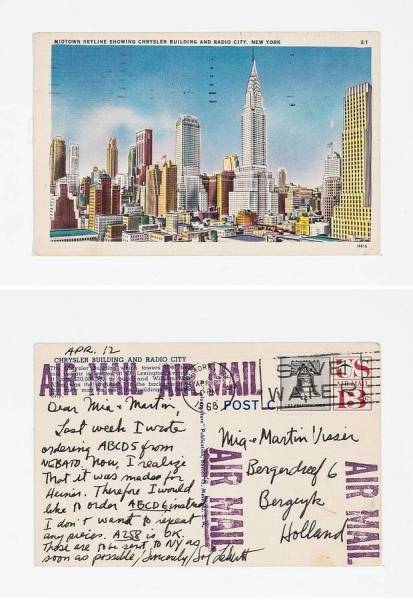 MIDTOWN SKYLINE SHOWING CHRYSLER BUILDING AND RADIO CITY, NEW YORK
21
APR. 12
CHRYSLER BUILDING AND RADIO CITY
AIR MAIL AIR MAIL
Dear Mia + Martin,
Last week I wrote
ordering ABCD5 from
NEBATO. Now, I realize
That it was made for
Heiner. Therefore I would
like to order ABCD6 instead
I don't want to repeat
any pieces. A258 is OK.
These are to be sent to NY as
soon as possible/Sincerely/Sol Lewitt
APR
1968
POST C
US
AIR MAIL
13
Mia + Martin Visser
Bergerdreef 6
Bergeyk
Holland
AIR MAIL
AIR MAIL